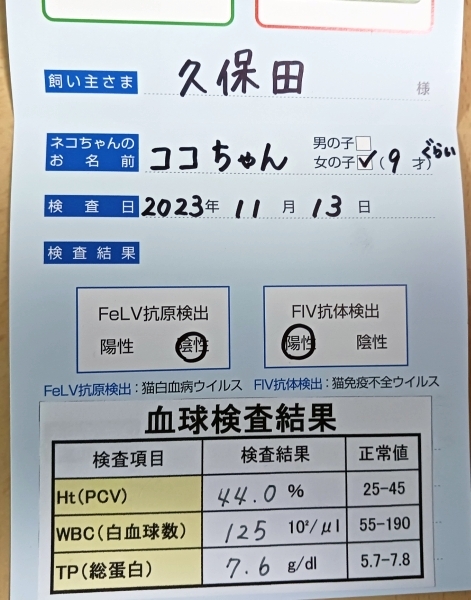 飼い主さま 久保田 様
ネコちゃんの
お名前 ココちゃん 男の子□ 女の子☑ (9才)ぐらい
検査日 2023年 11月 13日
検査結果
FeLV抗原検出 FIV抗体検出
陽性 陰性 陽性 陰性
FeLV抗原検出：猫白血病ウイルス FIV抗体検出：猫免疫不全ウイルス
血球検査結果
検査項目 検査結果 正常値
Ht(PCV) 44.0 % 25-45
WBC(白血球数) 125 10²/μl 55-190
TP(総蛋白) 7.6 g/dl 5.7-7.8